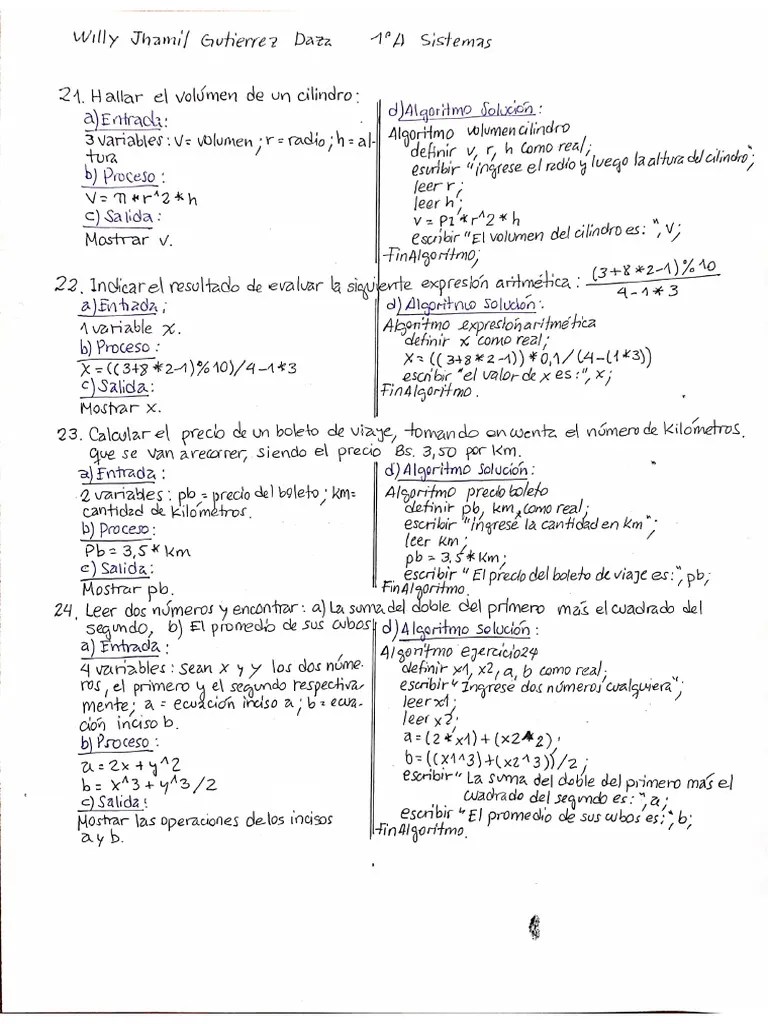 Willy Jhamil Gutierrez Daza 1ºA Sistemas
21. Hallar el volúmen de un cilindro:
a) Entrada:
3 variables: V= volumen; r = radio; h = al-
tura
b) Proceso:
V = π * r^2 * h
c) Salida:
Mostrar v.
d) Algoritmo Solución:
Algoritmo volumencilindro
definir v, r, h como real;
escribir "ingrese el radio y luego la altura del cilindro";
leer r;
leer h;
v = PI * r^2 * h
escribir "El volumen del cilindro es: ", v;
FinAlgoritmo;
22. Indicar el resultado de evaluar la siguiente expresión aritmética: (3+8*2-1)%10
4-1*3
a) Entrada:
1 variable x.
b) Proceso:
X = ((3+8*2-1)%10)/4-1*3
c) Salida:
Mostrar x.
d) Algoritmo solución:
Algoritmo expresiónaritmética
definir x como real;
X = ((3+8*2-1))*0,1/(4-(1*3))
escribir "el valor de x es:", x;
FinAlgoritmo.
23. Calcular el precio de un boleto de viaje, tomando en cuenta el número de kilómetros.
que se van a recorrer, siendo el precio Bs. 3,50 por Km.
a) Entrada:
2 variables: pb = precio del boleto; km=
cantidad de kilómetros.
b) Proceso:
Pb = 3,5 * Km
c) Salida:
Mostrar pb.
d) Algoritmo Solución:
Algoritmo precioboleto
definir pb, km, como real;
escribir "ingrese la cantidad en km";
leer km;
pb = 3,5 * Km;
escribir "El precio del boleto de viaje es:", pb;
FinAlgoritmo.
24. Leer dos números y encontrar: a) La suma del doble del primero más el cuadrado del
segundo, b) El promedio de sus cubos
a) Entrada:
4 variables: Sean x y y los dos núme-
ros, el primero y el segundo respectiva-
mente; a = ecuación inciso a; b = ecua-
ción inciso b.
b) Proceso:
a = 2x + y^2
b = x^3 + y^3 /2
c) Salida:
Mostrar las operaciones de los incisos
a y b.
d) Algoritmo solución:
Algoritmo ejercicio24
definir x1, x2, a, b como real;
escribir "Ingrese dos números cualquiera";
leer x1;
leer x2;
a = (2*x1)+(x2^2);
b = ((x1^3)+(x2^3))/2;
escribir "La suma del doble del primero más el
cuadrado del segundo es: ", a;
escribir "El promedio de sus cubos es: ", b;
FinAlgoritmo.